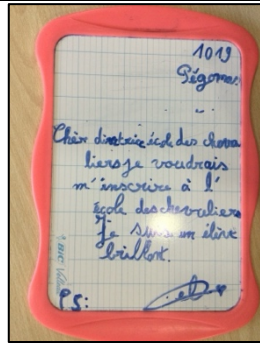 1019
Pégomas
Chèr diretrice école des cheva
liers je voudrais
m'inscrire à l'
école des chevaliers
Je suis un élève
brillant.
PS:
BIC Velleda